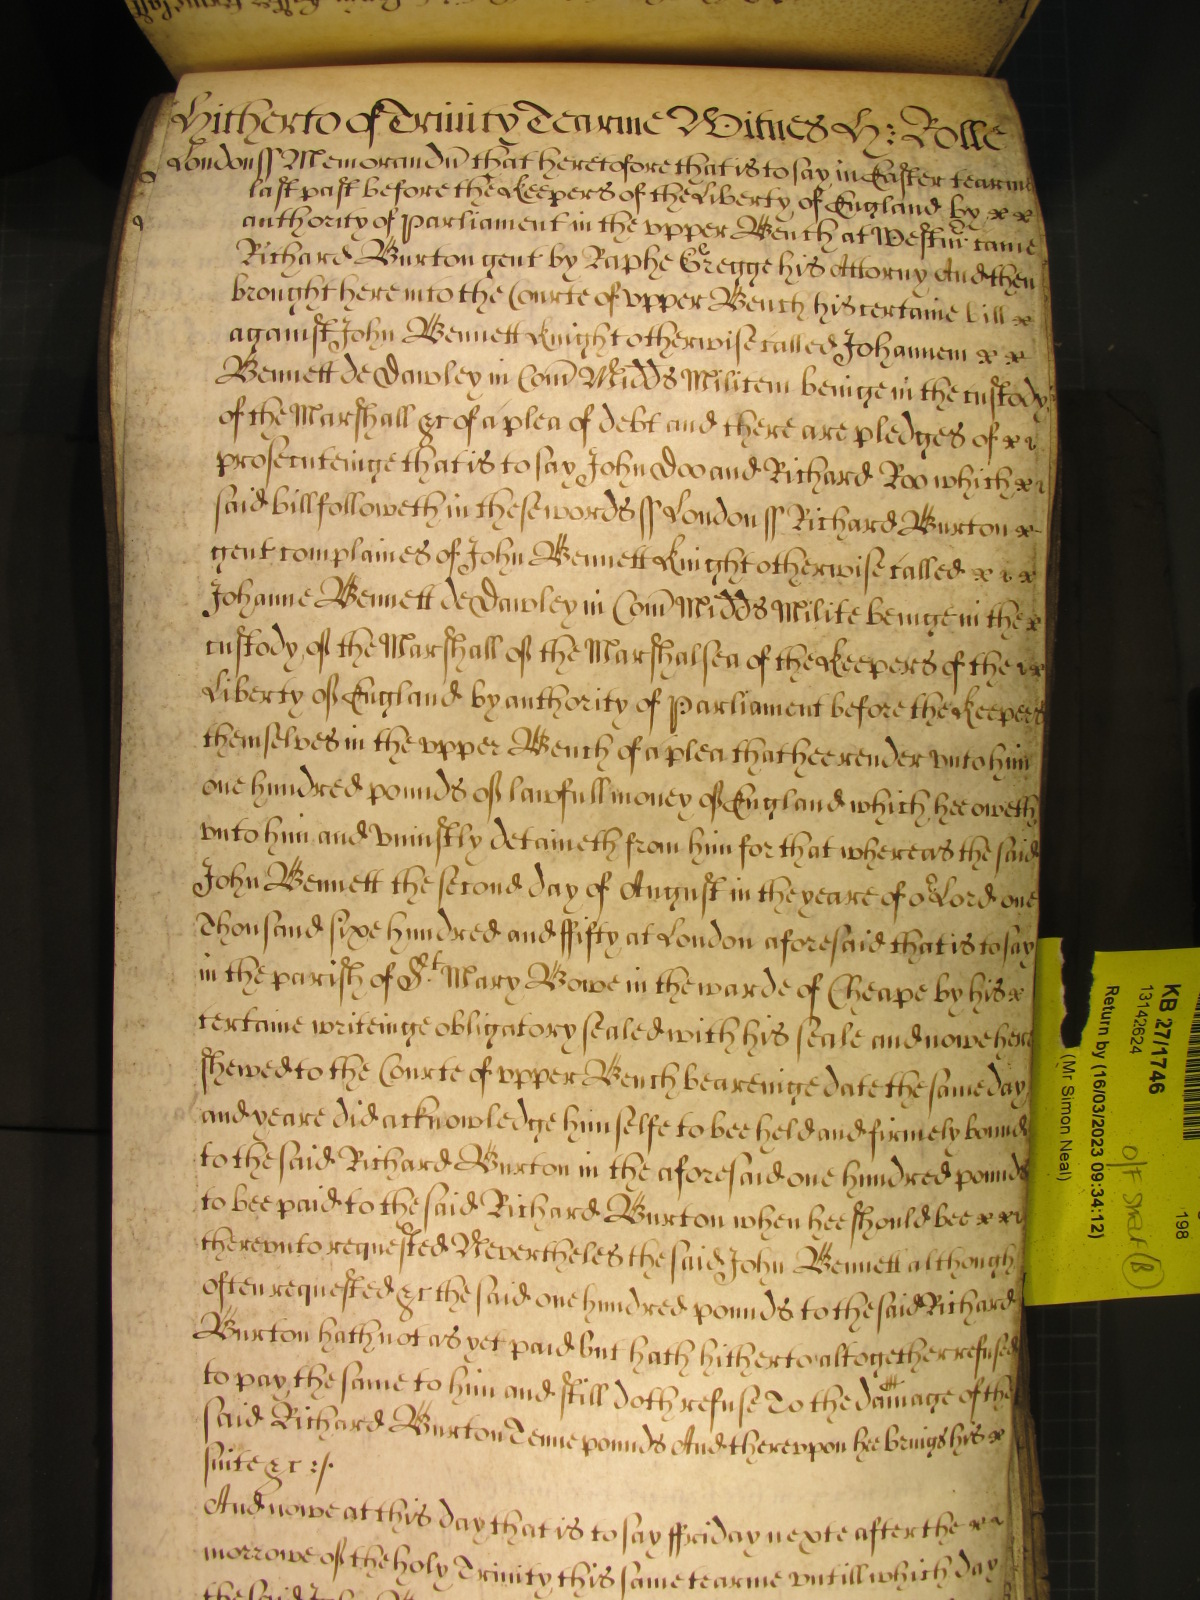 Hitherto of Trinity Tearme Witnes H: Rolle
London ss Memorandũ that heretofore that is to say in Easter tearme
last past before the Keepers of the Liberty of England by x x
authority of Parliament in the upper Bench at Westmr came
Richard Burton gent by Raphe Gregge his Attorny And then
brought here into the Courte of upper Bench his certaine bill x
against John Bennett Knight otherwise called Johannem x x
Bennett de Dawley in Com̃ Midds Militem beinge in the custody
of the Marshall &c of a plea of debt and there are pledges of x x
prosecuteinge that is to say John Doo and Richard Roo which x x
said bill followeth in these words ss London ss Richard Burton x
gent complaines of John Bennett Knight otherwise called x x x
Johanne Bennett de Dawley in Com̃ Midds Milite beinge in the x
custody of the Marshall of the Marshalsea of the Keepers of the x x
Liberty of England by authority of Parliament before the Keepers
themselves in the upper Bench of a plea that hee render unto him
one hundred pounds of lawfull money of England which hee oweth
unto him and uniustly detaineth from him for that whereas the said
John Bennett the second day of August in the yeare of or Lord one
Thousand sixe hundred and ffifty at London aforesaid that is to say
in the parish of St Mary Bowe in the warde of Cheape by his x
certaine writeinge obligatory sealed with his seale and nowe here
shewed to the Courte of upper Bench beareinge date the same day
and yeare did acknowledge himselfe to bee held and firmely bound
to the said Richard Burton in the aforesaid one hundred pounds
to bee paid to the said Richard Burton when hee should bee x x x
thereunto requested Nevertheles the said John Bennett although
often requested &c the said one hundred pounds to the said Richard
Burton hath not as yet paid but hath hitherto altogether refused
to pay the same to him and still doth refuse To the damage of the
said Richard Burton Tenne pounds And thereupon hee brings his x
suite &c :/.
And nowe at this day that is to say ffriday nexte after the x x
morrowe of the holy Trinity this same tearme untill which day
the said John
KB 27/1746
13142624
198
Return by (16/03/2023 09:34:12)
(Mr Simon Neal)